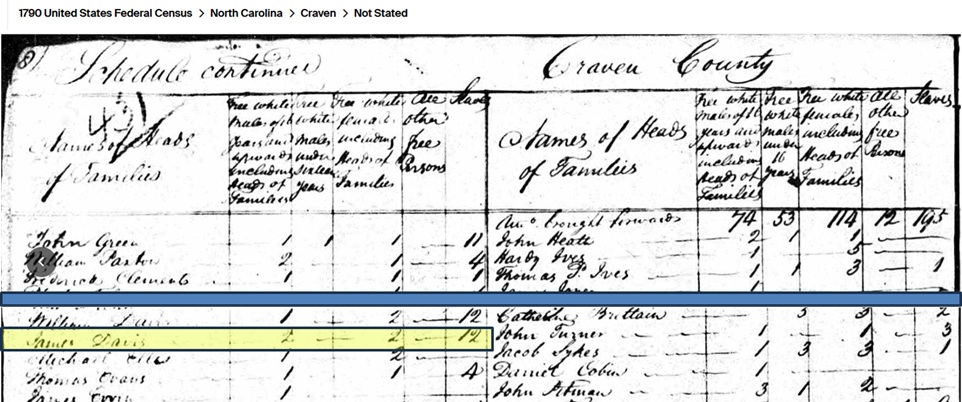 1790 United States Federal Census > North Carolina > Craven > Not Stated
8
Schedule continued
431
Names of Heads
of Families
Free white males of 16 years and upwards including Heads of Families
Free white males under sixteen years
Free white females including Heads of Families
All other free Persons
Slaves
John Green 1 1 1 — 11
William 2 — 1 — 4
Frederick Clements 1 1 1
William Davis 1 — 2 — 12
James Davis 2 — 2 — 12
Michael 1 — 2
Thomas Evans 1 1 4
James 1
Craven County
Names of Heads
of Families
Free white males of 16 years and upwards including Heads of Families
Free white males under 16 years
Free white females including Heads of Families
All other free Persons
Slaves
Amo. brought forwards 74 53 114 12 195
John Heath 2 1 1
Hardy Ives 1 — 5
Thomas P. Ives 1 1 3 — 1
Catherine Brittain — 3 3 — 2
John Turner 1 — 1 — 3
Jacob Sykes 1 3 3 — 1
Daniel Cobin 1
John 3 1 2